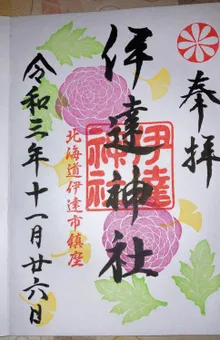 奉拝
伊達神社
伊達神社
北海道伊達市鎮座
令和三年十一月廿六日